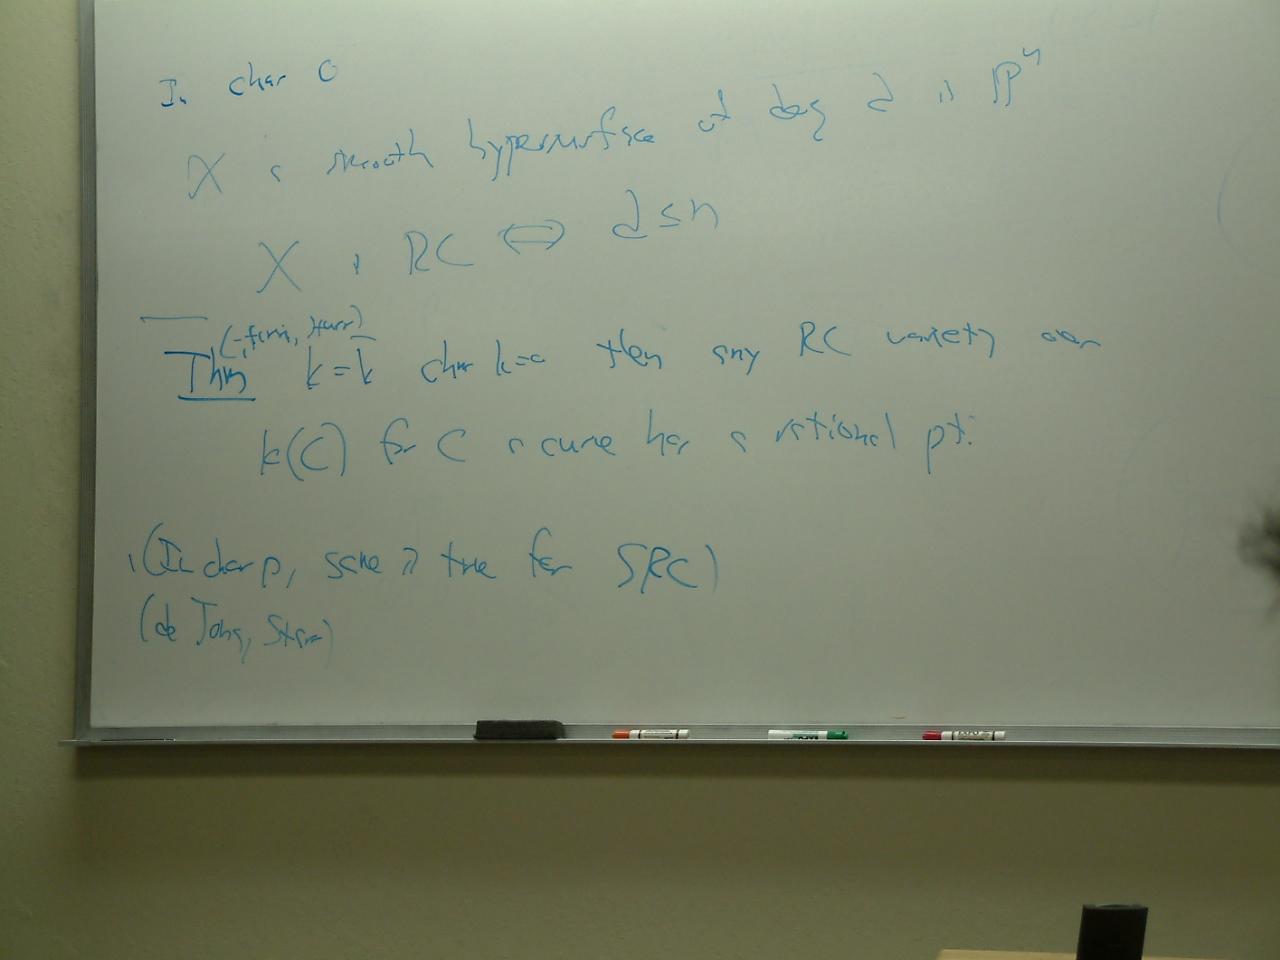 In char 0
X a smooth hypersurface of deg d in ℙⁿ
X is RC ⟺ d ≤ n
Starr)
Thm k = k̄ char k=0 then any RC variety over
k(C) for C a curve has a rational pt.
(In char p, same is true for SRC)
(de Jong, Starr)